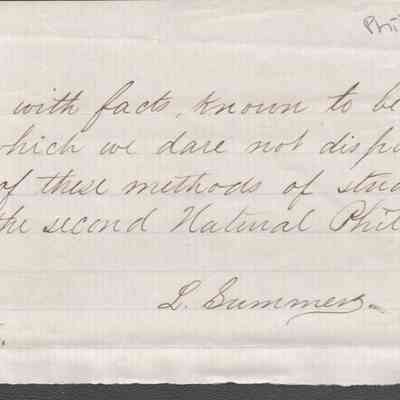 Phil
with facts, known to be
which we dare not disp
of these methods of stud
the second Natural Phil
L. Summers.